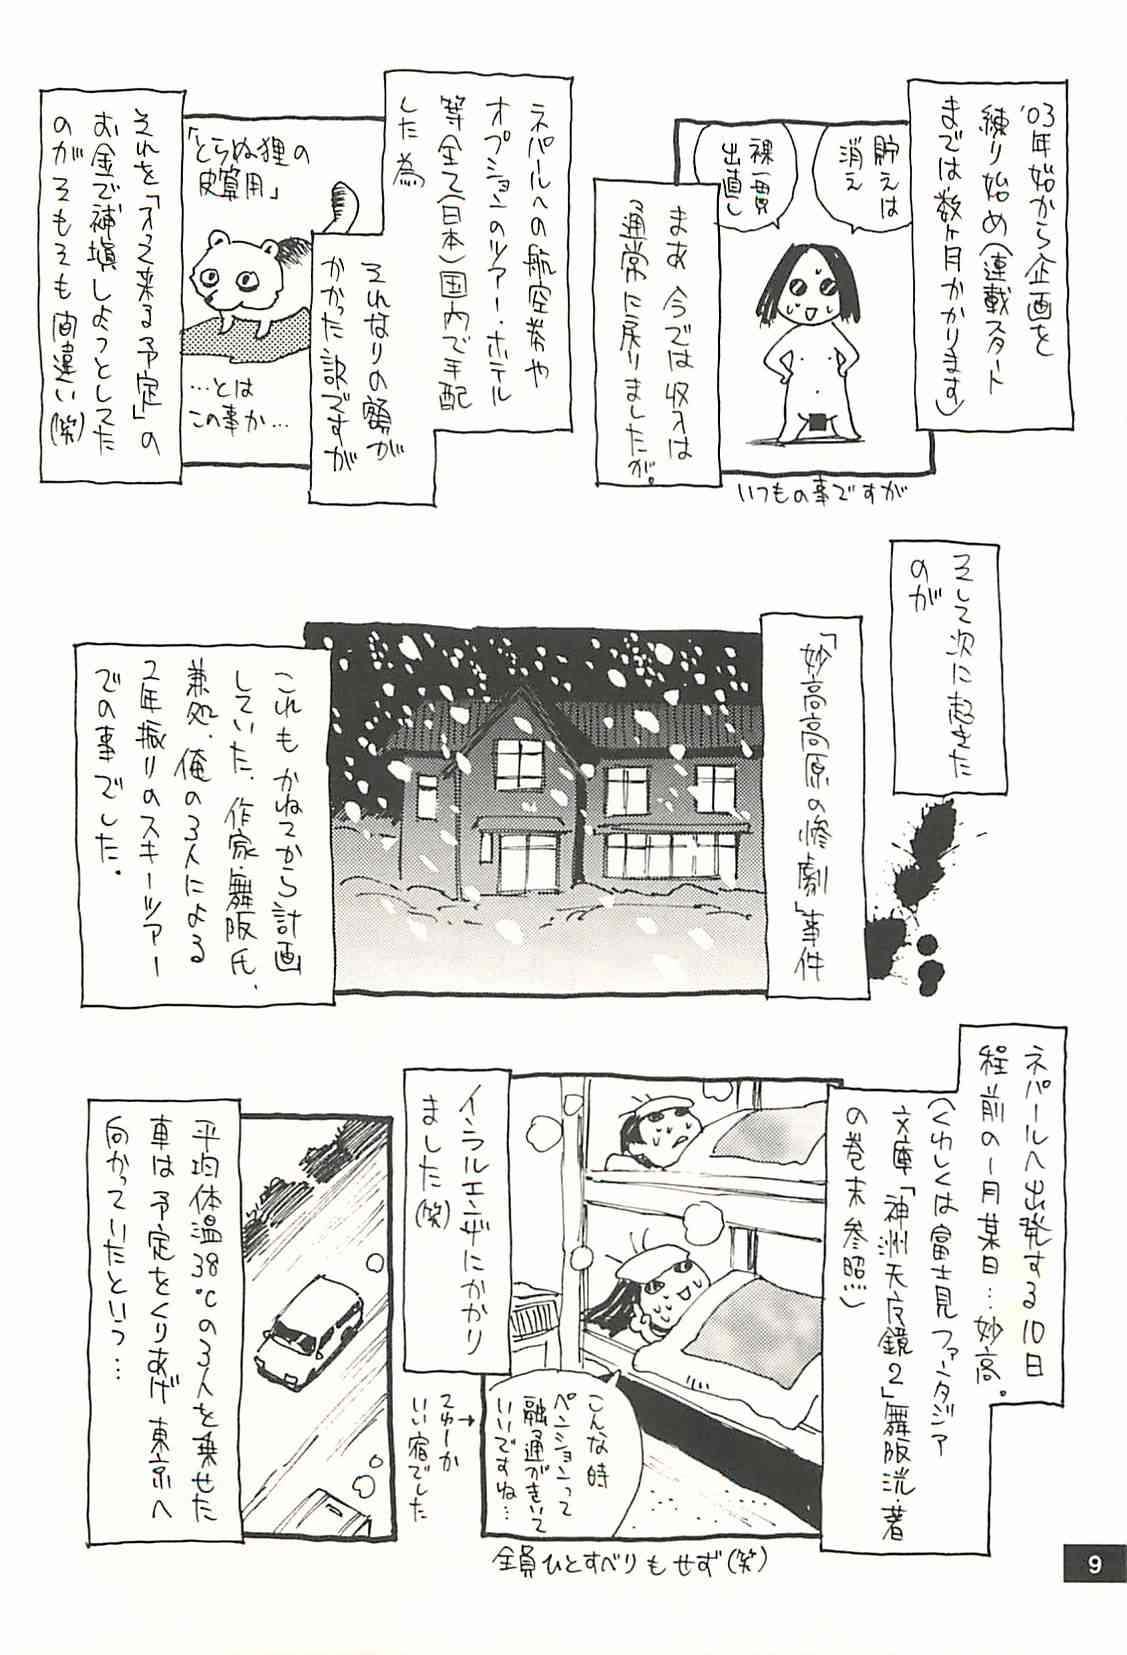 '03年始から企画を
練り始め(連載スタート
までは数ヶ月かかります)
貯えは
消え
裸一貫
出直し
まあ今では収入は
通常に戻りましたが。
いつもの事ですが
ネパールへの航空券や
オプションのツアー・ホテル
等全て(日本)国内で手配
した為
それなりの額が
かかった訳ですが
「とらぬ狸の
皮算用」
…とは
この事か…
それを「入って来る予定」の
お金で補填しようとしてた
のがそもそも間違い(笑)
そして次に起きた
のが
「妙高高原の惨劇」事件
これもかねてから計画
していた、作家・舞阪氏、
兼処、俺の3人による
2年振りのスキーツアー
での事でした。
ネパールへ出発する10日
程前の1月某日…妙高。
(くわしくは富士見ファンタジア
文庫「神洲天虎鏡2」舞阪洸・著
の巻末参照)
インフルエンザにかかり
ました(笑)
こんな時
ペンションって
融通がきいて
いいですね…
→
てゆーか
いい宿でした
全員ひとすべりもせず(笑)
平均体温38℃の3人を乗せた
車は予定をくりあげ東京へ
向かっていたという…
9